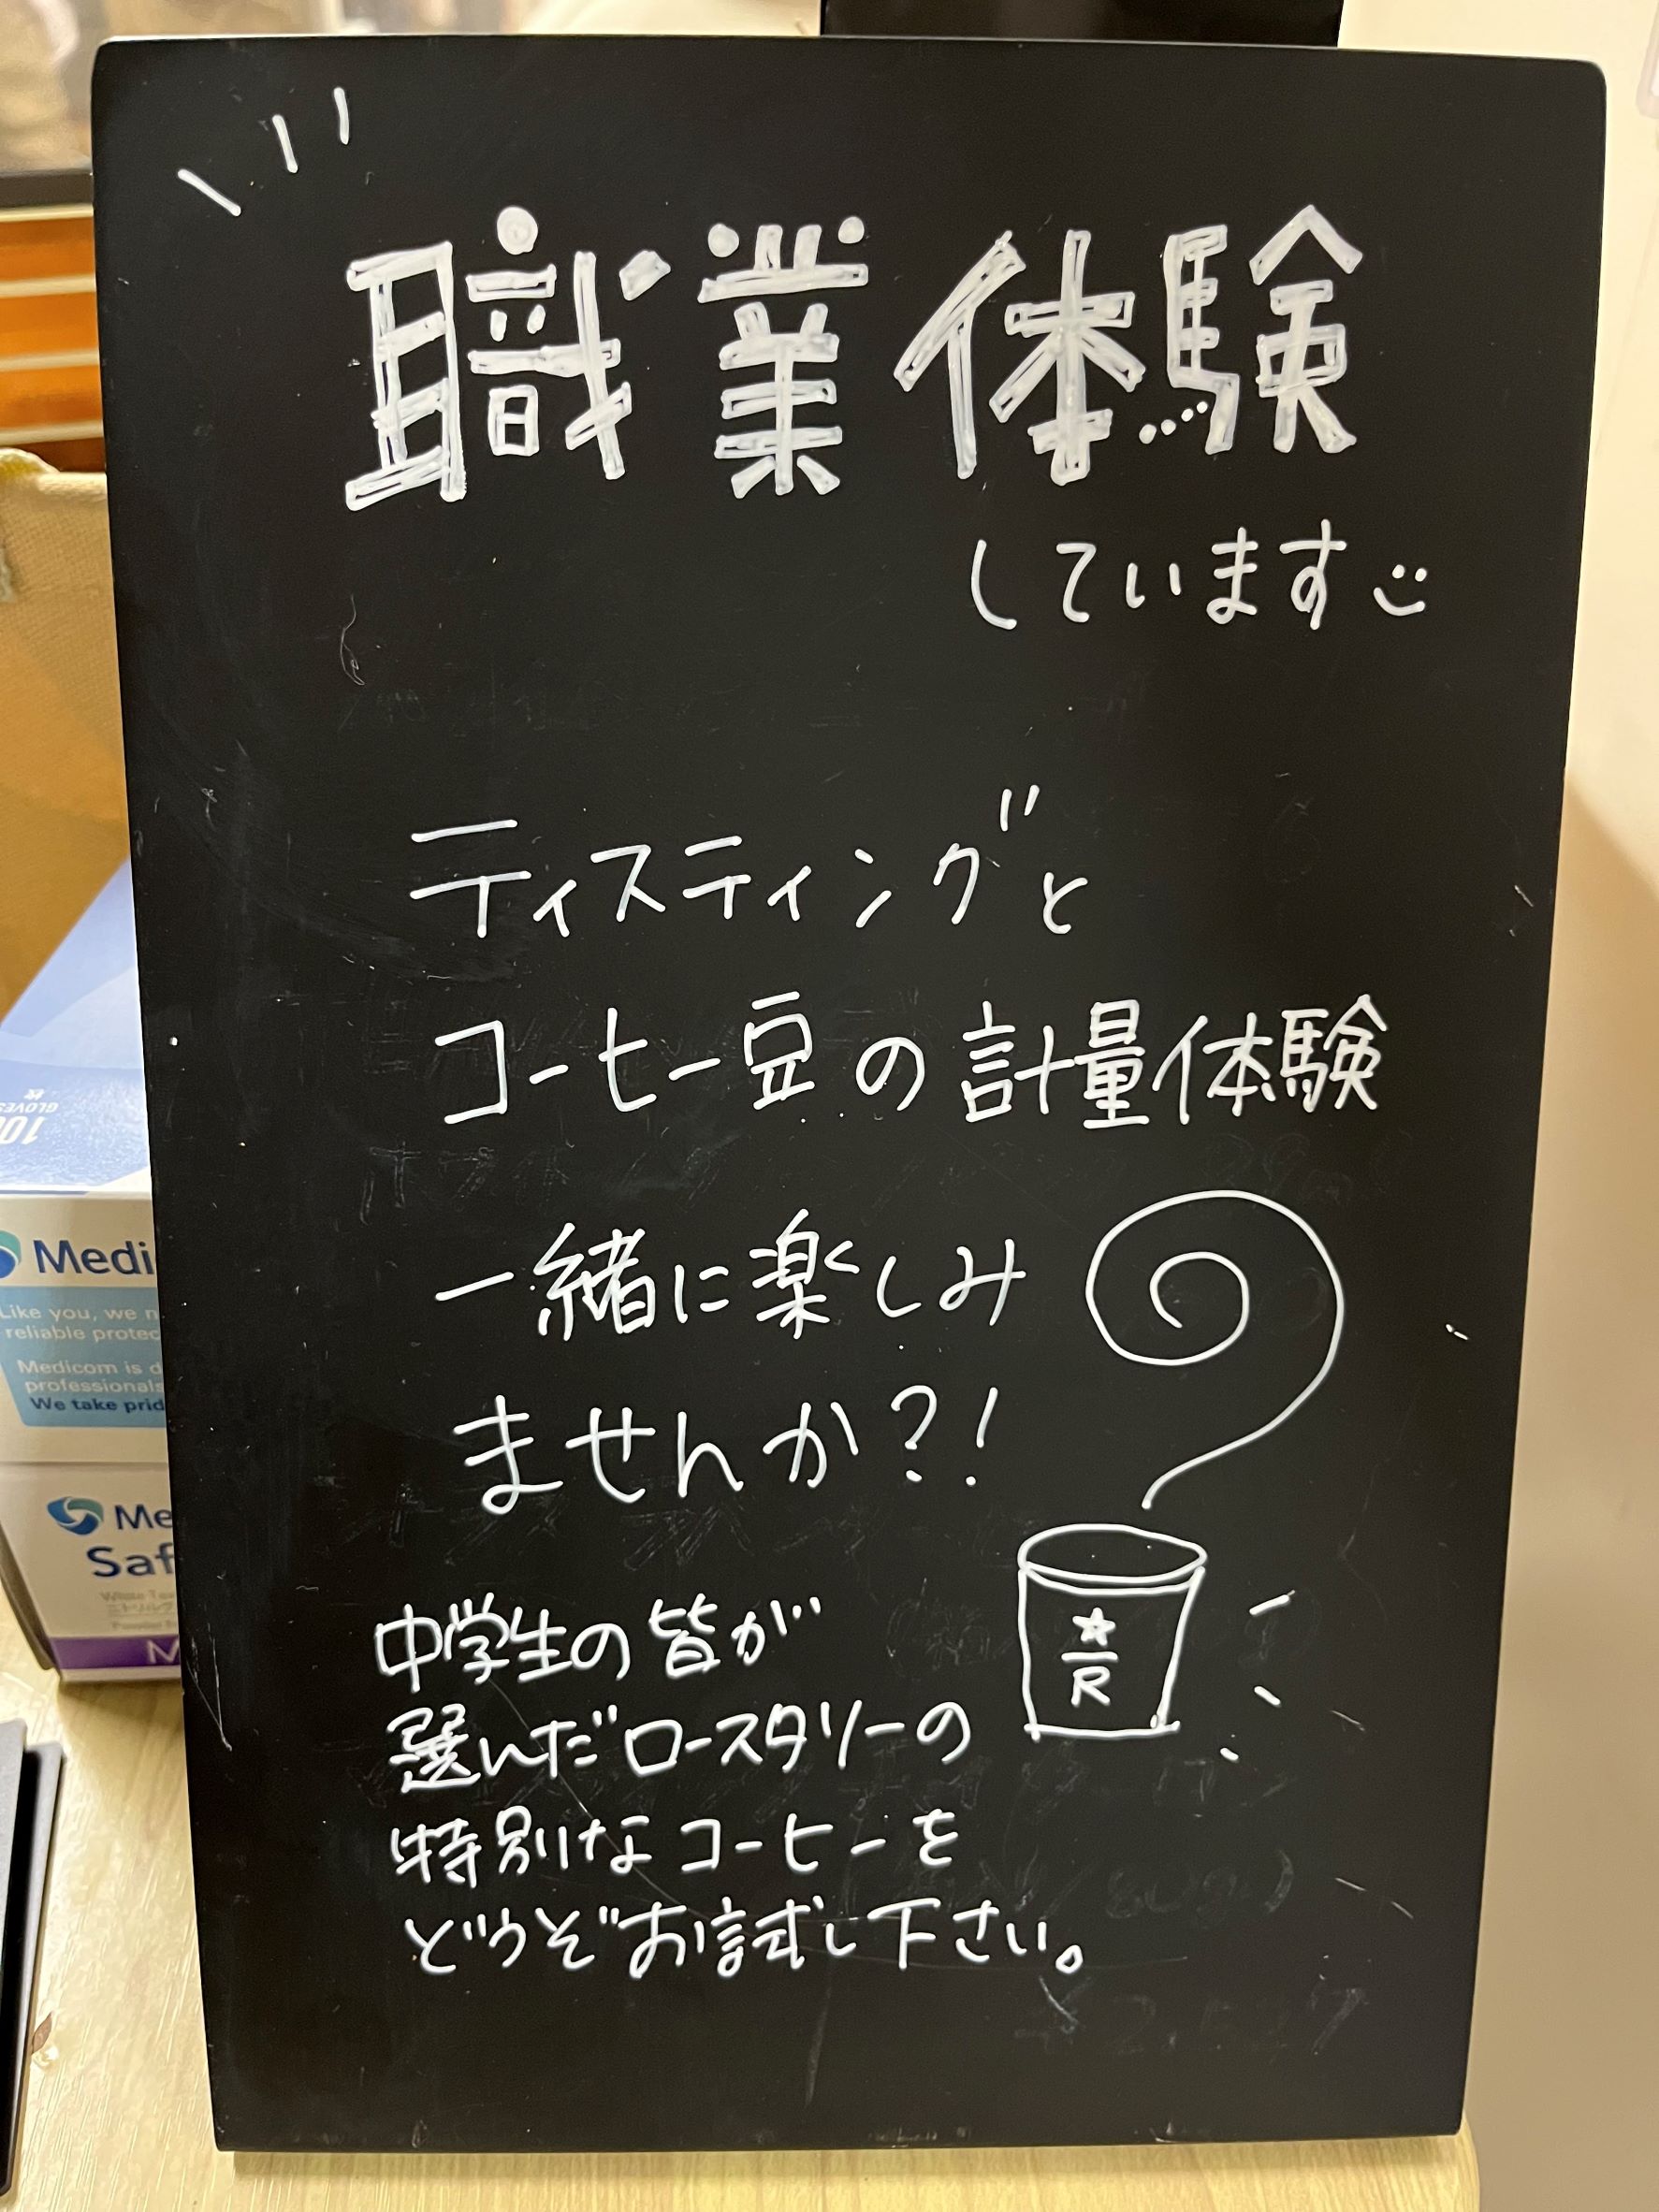 職業体験
しています
ティスティングと
コーヒー豆の計量体験
一緒に楽しみ
ませんか?!
中学生の皆が
選んだロースタリーの
特別なコーヒーを
どうぞお試し下さい。
★
R
100
GLOVES
Medi
Like you, we n
reliable protec
Medicom is d
professionals
We take prid
Me
Saf
M